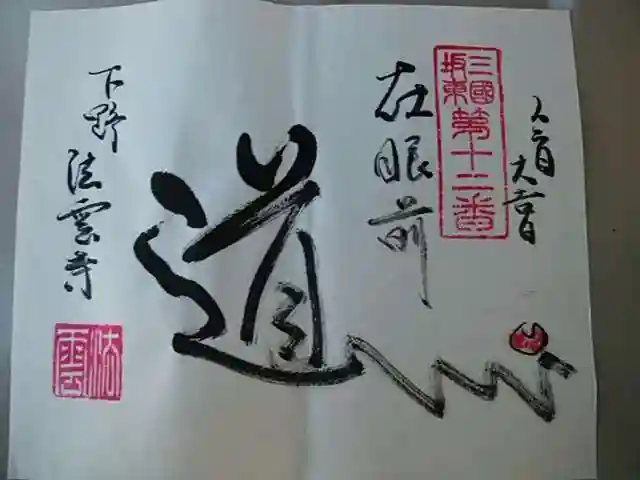 三國
坂東
第十二番
在眼前
道
下野 法雲寺
法雲